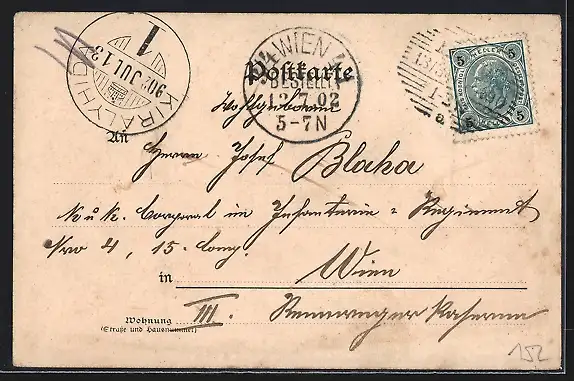 KIRALYHIDA
902 JUL 13
1
WIEN
BESTELLT
13.7.02
5-7N
Postkarte
5 5
5 5
Wohlgeboren
An
Herrn Josef Blaha
K. u. k. Corporal im Infanterie-Regiment
Nro 4, 15. Comp.
in Wien
Wohnung
(Straße und Hausnummer)
III. Rennweger Kaserne
152